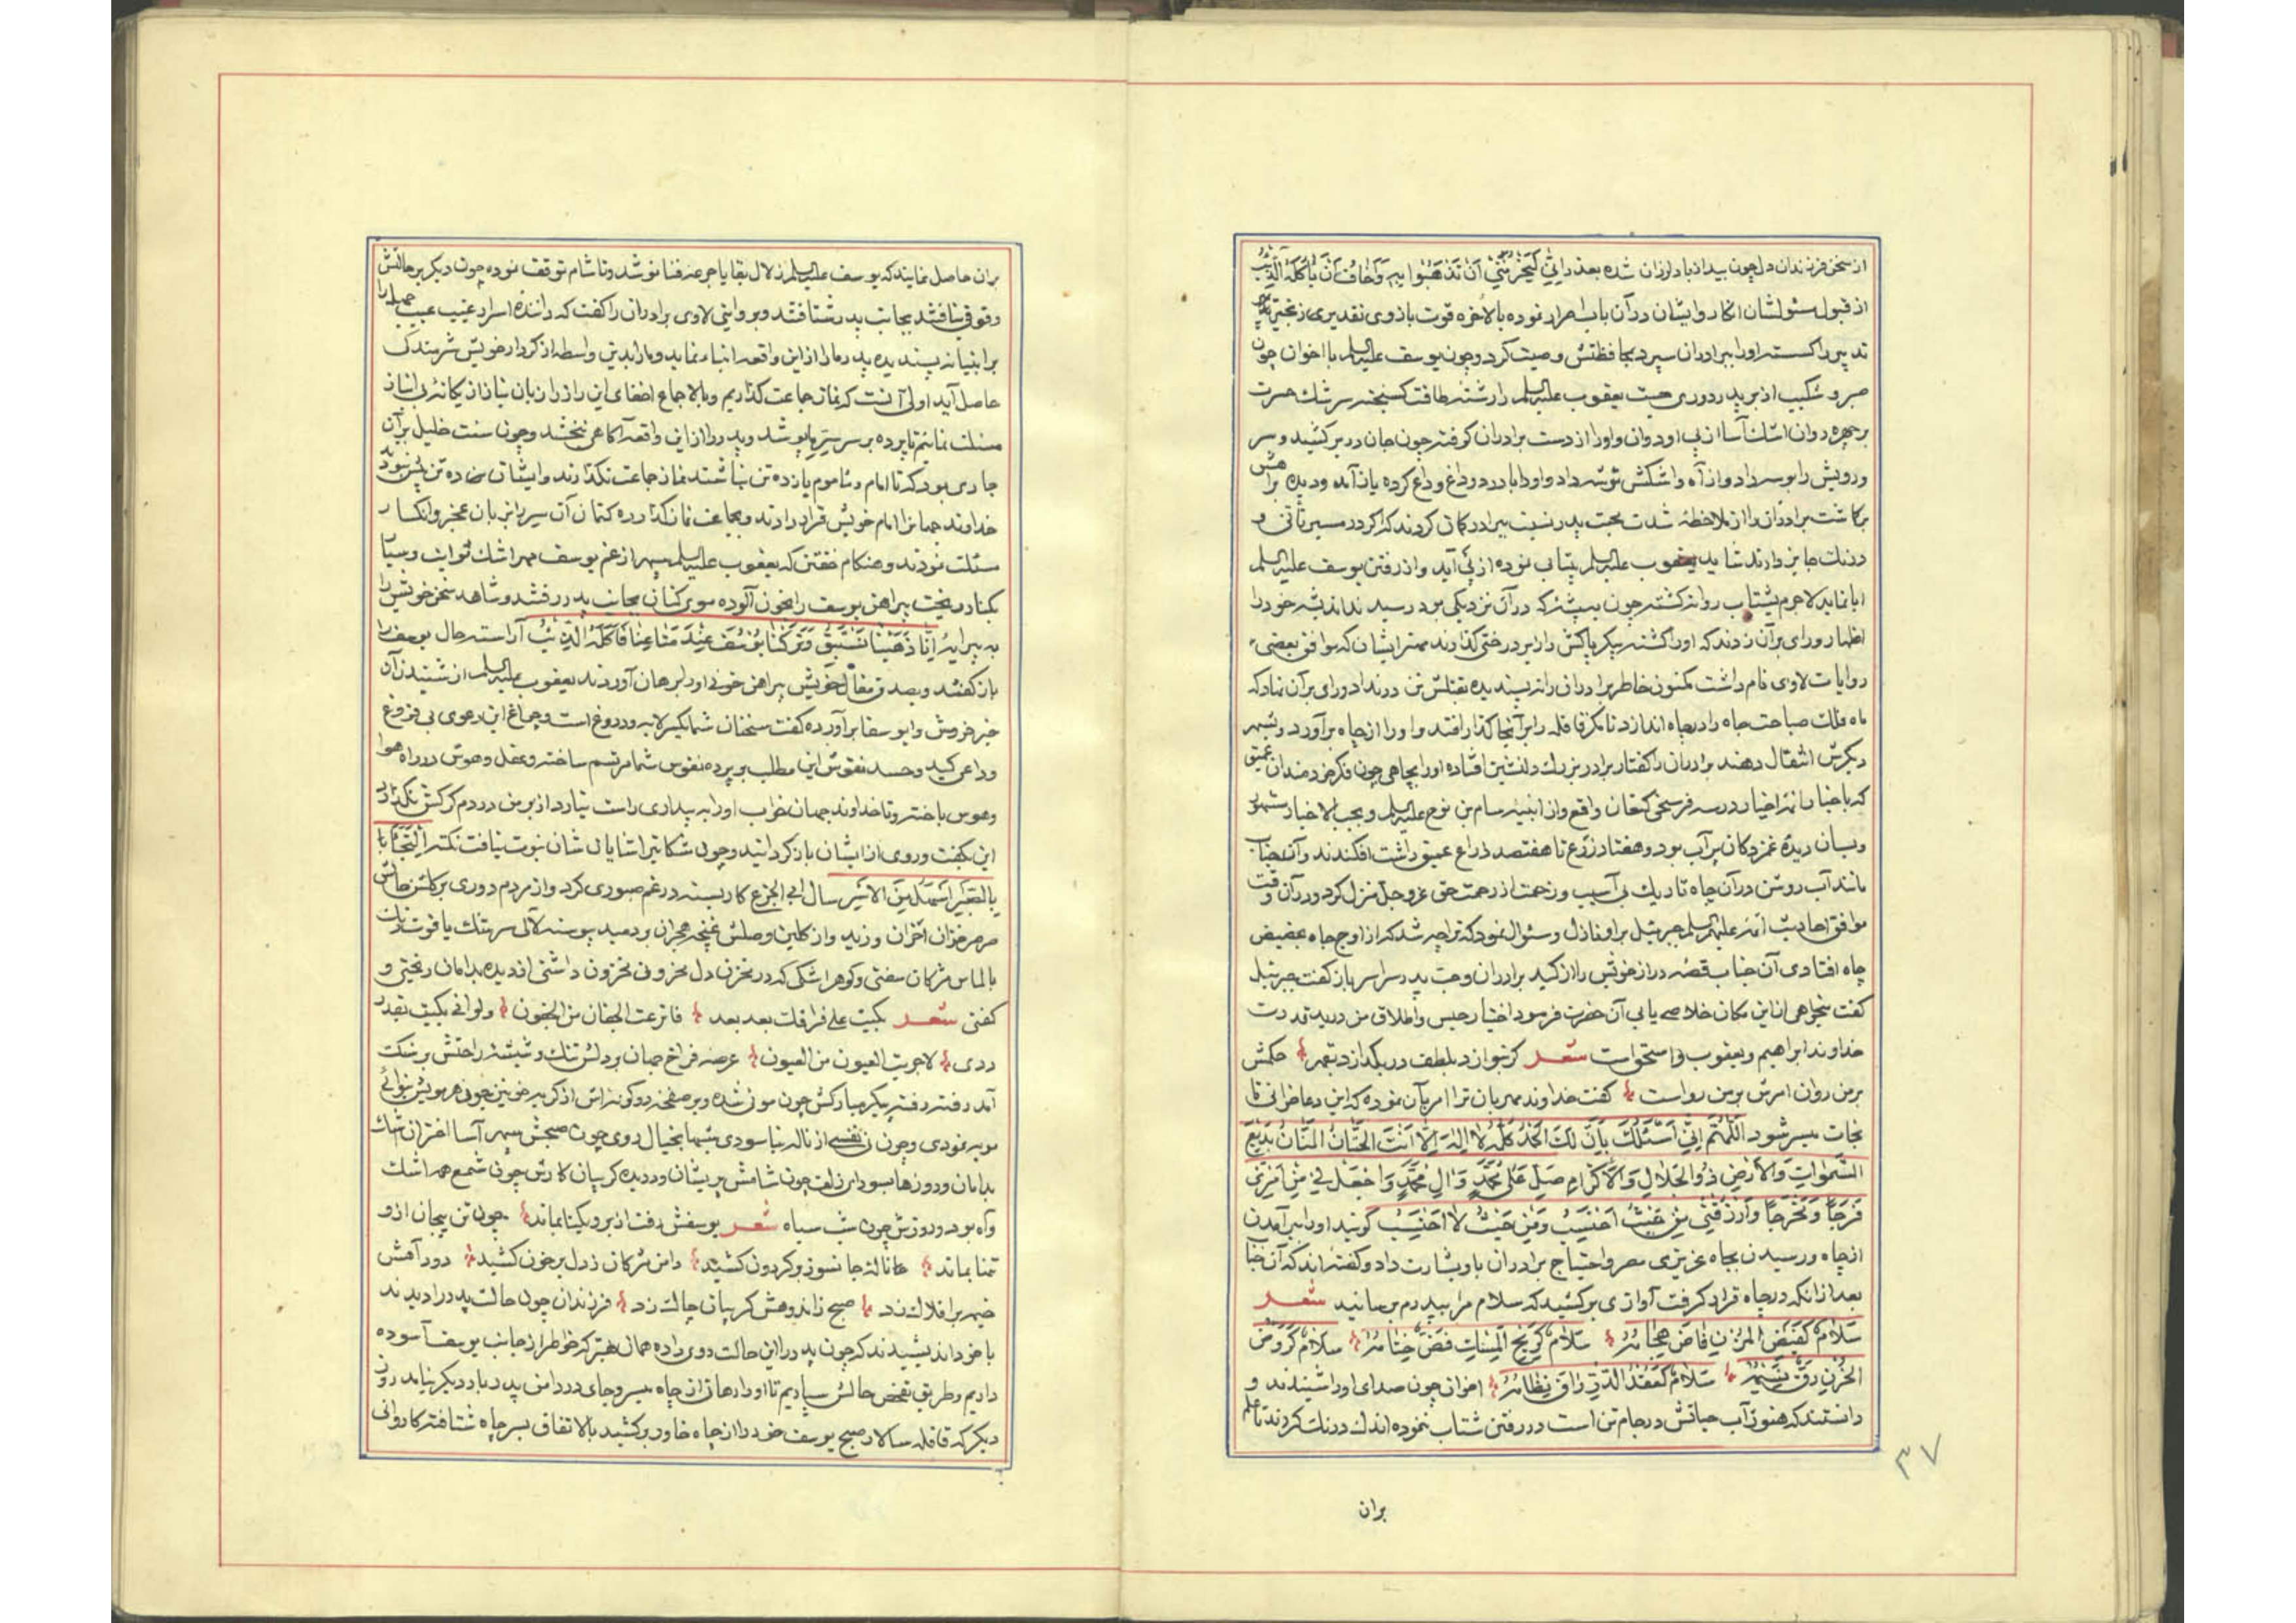 از سخن فرزندان دل چون بید از باد لرزان شده بعذر اِنِّي لَيَحْزُنُنِي اَنْ تَذْهَبُوا بِهِ وَاَخَافُ اَنْ يَأْكُلَهُ الذِّئْبُ
از قبول مسئولشان انکار و ایشان در آن باب اصرار نموده بالاخره قوت بازوی تقدیری زنجیر
تدبیر را کسسته او را ببرادران سپرد بمحافظتش وصیت کرد و چون یوسف علیه السلم با اخوان چون
صبر و شکیب از بر پدر دوری جست یعقوب علیه السلم را رشته طاقت کسیخته سرشک حسرت
بر چهره روان اشک آسا از پی او دوان و او را از دست برادران کرفته چون جان در بر کشید و سر
و رویش را بوسه داد و از آه و اشکش توشه داد و او را با درد و داغ وداع کرده باز آمد و دیده براهش
بر کاشت برادران را از ملاحظهٔ شدت محبت پدر نسبت ببرادر کمان کردند که اکر در مسیر تأنی و
درنک جایز دارند شاید یعقوب علیه السلم بیتابی نموده از پی آید و از رفتن یوسف علیه السلم
ابا نماید لاجرم بشتاب روانه کشته چون ببیشه که در آن نزدیکی بود رسیدند اندیشه خود را
اظهار و رای بر آن زدند که او را کشته پیکر پاکش را زیر درختی کذارند مهتر ایشان که موافق بعضی
روایات لاوی نام داشت مکنون خاطر برادران را نپسندیده بقتلش تن در نداد و رای بر آن نهاد که
ماه فلک صباحت جاه را در چاه اندازد تا مکر قافله را بر آنجا کذار افتد و او را از چاه برآورد و بشهر
دیکرش انتقال دهند برادران را کفتار برادر بزرک دلنشین افتاده او را بچاهی چون فکر خردمندان عمیق
که باخبار ائمه اخیار در سه فرسخی کنعان واقع و از ابنیه سام بن نوح علیه السلم و بحسب الاخبار مشهور
و بسان دیدهٔ غمزدکان پر آب بود و هفتاد زرع تا هفتصد ذراع عمیق داشت افکندند و آن جناب
مانند آب روشن در آن چاه تاریک بی آسیب و زحمت از رحمت حق عز و جل منزل کرد و در آن وقت
موافق احادیث ائمه علیهم السلم جبرئیل بر او نازل و سئوال نمود که ترا چه شد که از اوج جاه بحضیض
چاه افتادی آن جناب قصه دراز خویش را از کید برادران و حب پدر سراسر باز کفت جبرئیل
کفت میخواهی از این مکان خلاصی یابی آن حضرت فرمود اختیار حبس و اطلاق من در ید قدرت
خداوند ابراهیم و یعقوب و اسحق است شعر کر نوازد بلطف در بکدازد بقهر حکمش
بر من روان امرش بر من رواست کفت خداوند مهربان ترا امر بآن نموده که این دعا خوانی تا
نجات میسر شود اَللّٰهُمَّ اِنِّي اَسْئَلُكَ بِاَنَّ لَكَ الْحَمْدَ كُلَّهُ لَا اِلٰهَ اِلَّا اَنْتَ الْحَنَّانُ الْمَنَّانُ بَدِيعُ
السَّمٰوَاتِ وَالْاَرْضِ ذُو الْجَلَالِ وَالْاِكْرَامِ صَلِّ عَلٰى مُحَمَّدٍ وَاٰلِ مُحَمَّدٍ وَاجْعَلْ لِي مِنْ اَمْرِي
فَرَجًا وَمَخْرَجًا وَارْزُقْنِي مِنْ حَيْثُ اَحْتَسِبُ وَمِنْ حَيْثُ لَا اَحْتَسِبُ کویند او را ببر آمدن
از چاه و رسیدن بجاه عزیزی مصر و احتیاج برادران باو بشارت داد و کفته‌اند که آن جناب
بعد از آنکه در چاه قرار کرفت آوازی بر کشید که سلام مرا بپدرم برسانید شعر
سَلَامٌ كَفَيْضِ الْمُزْنِ فَاضَ سَلَامٌ كَرِيحِ الْمِسْكِ فُضَّ خِتَامُهُ سَلَامٌ كَرَوْضِ
الْحُزْنِ رَقَّ نَسِيمُهُ سَلَامٌ كَعِقْدِ الدُّرِّ رَاقَ نِظَامُهُ اخوان چون صدای او را شنیدند و
دانستند که هنوز آب حیاتش در جام تن است در رفتن شتاب ننموده اندک درنک کردند تا علم
بران
۳۷
بر آن حاصل نمایند که یوسف علیه السلم زلال بقا یا جرعه فنا نوشد و تا شام توقف نموده چون دیکر بر حالتش
وقوفی نیافتند بجانب پدر شتافتند و بروایتی لاوی برادران را کفت که داننده اسرار غیب عیب جمیله را
بر انبیا نپسندیده پدر ما را از این واقعه انباء نماید و ما را بدین واسطه از کردار خویش شرمندکی
حاصل آید اولی آنست که نماز جماعت کذاریم و بالاجماع اخفای این راز را از زبان نیاز از یکانه بی انباز
مسئلت نمائیم تا پرده بر سر سرّ ما پوشد و پدر را از این واقعه آکاهی نبخشد و چون سنت خلیل بر آن
جاری بود که تا امام و ماموم یازده تن نباشند نماز جماعت نکذارند و ایشان ده تن بیش نبودند
خداوند جهانرا امام خویش قرار دادند و بجماعت نماز کذارده کتمان آن سر را بزبان عجز و انکسار
مسئلت نمودند و هنکام خفتن که یعقوب علیه السلم سپهر از غم یوسف مهر اشک ثوابت و سیار
بکنار میریخت پیراهن یوسف را بخون آلوده مویه کنان بجانب پدر رفتند و شاهد سخن خویش را
به پیرایهٔ اِنَّا ذَهَبْنَا نَسْتَبِقُ وَتَرَكْنَا يُوسُفَ عِنْدَ مَتَاعِنَا فَاَكَلَهُ الذِّئْبُ آراسته حال یوسف را
باز کفتند و بصدق مقال خویش پیراهن خونی او را برهان آوردند یعقوب علیه السلم از شنیدن آن
خبر خروش وا یوسفا برآورده کفت سخنان شما یکسر لابه و دروغ است و چراغ این دعوی بی فروغ
وداعی کید و حسد نقوش این مطلب بر پرده نفوس شما مرتسم ساخته و عقل و هوش در راه هوا
و هوس باخته و تا خداوند جهان خواب او را به بیداری راست نیارد از بر من در دم کرکش نکذارد
این بکفت و روی از ایشان باز کردانید و چون شکایترا شایان شان نبوت نیافت
بالصبر کار بسته در غم صبوری کرد و از مردم دوری بر کلشن حالش
صرصر خزان احزان وزید و از کلبن وصلش غنچه هجران بر دمید پیوسته لآلی سرشک یاقوت رنک
بالماس مژکان سفتی و کوهر اشکی که در مخزن دل محزون مخزون داشتی از دیده بدامان ریختی و
کفتی شعر بکیت علی فراقک بعد بعد فاترعت الجفان من الجفون ولو انی بکیت بقدر
دردی لاجریت العیون من العیون عرصه فراخ جهان بر دلش تنک و شیشهٔ راحتش بر سنک
آمد رفته رفته پیکر مبارکش چون موئی شده و بر صفحه دو کونه‌اش از کریه خونین جوئی هر مویش بنوائی
مویه نمودی و چون نی نفسی از ناله نیاسودی شبها بخیال روی چون صبحش سپهر آسا اختران اشک
بدامان و روزها بسودای زلف چون شامش پریشان و دریده کریبان کارش چون شمع همه اشک
و آه بود و روزش چون شب سیاه شعر یوسفش رفت از بر و یکتا بماند چون تن بیجان از او
تنها بماند نالهٔ جانسوز بر کردون کشید دامن مژکان ز دل بر خون کشید دود آهش
خیمه بر افلاک زد صبح ز اندوهش کریبان چاک زد فرزندان چون حالت پدر را دیدند
با خود اندیشیدند که چون پدر را این حالت روی داده همان بهتر که خاطر از جانب یوسف آسوده
داریم و طریق تفحص حالش سپاریم تا او را رهائی از چاه میسر و جای در دامن پدر بار دیکر نیابد روز
دیکر که قافله سالار صبح یوسف خود را از چاه خاور بر کشید بالاتفاق بسر چاه شتافته کاروانی